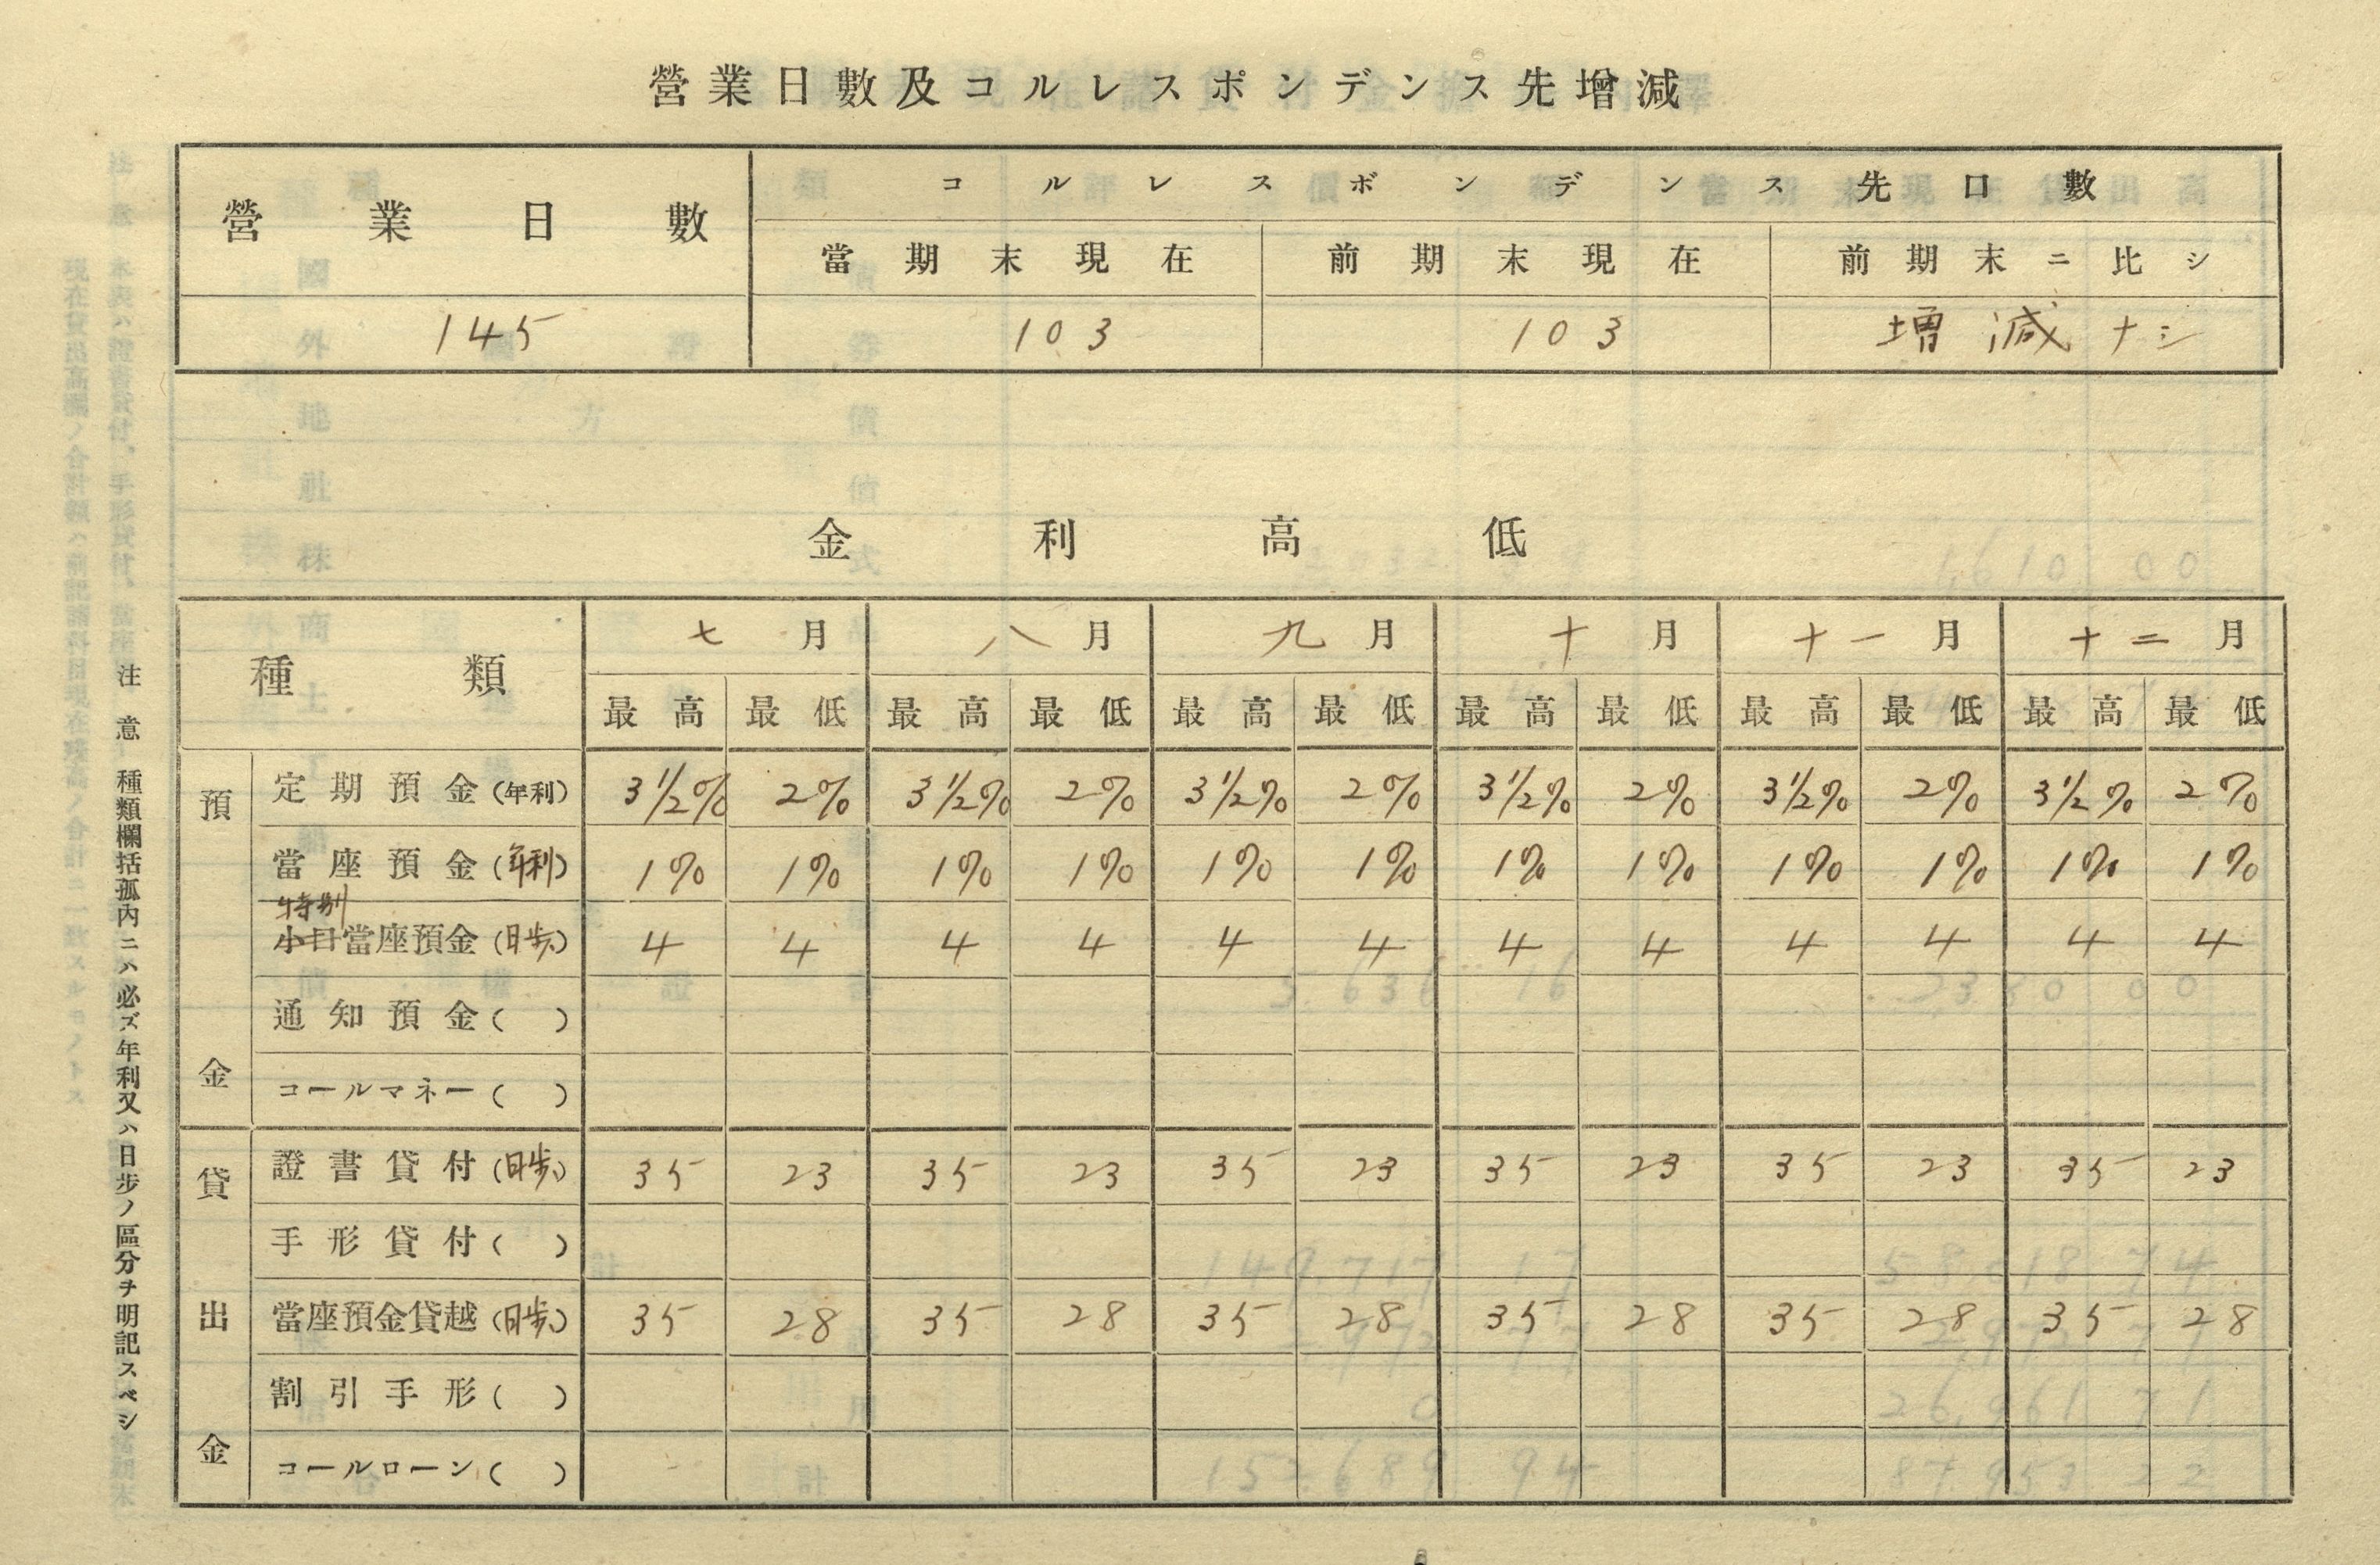 營業日數及コルレスポンデンス先增減
營業日數
コルレスポンデンス先口數
當期末現在 前期末現在 前期末ニ比シ
145 103 103 増減ナシ
金利高低
種類 七月 八月 九月 十月 十一月 十二月
最高 最低 最高 最低 最高 最低 最高 最低 最高 最低 最高 最低
預金
定期預金(年利) 3½% 2% 3½% 2% 3½% 2% 3½% 2% 3½% 2% 3½% 2%
當座預金(年利) 1% 1% 1% 1% 1% 1% 1% 1% 1% 1% 1% 1%
特別
小口當座預金(日歩) 4 4 4 4 4 4 4 4 4 4 4 4
通知預金( )
コールマネー( )
貸出金
證書貸付(日歩) 35 23 35 23 35 23 35 23 35 23 35 23
手形貸付( )
當座預金貸越(日歩) 35 28 35 28 35 28 35 28 35 28 35 28
割引手形( )
コールローン( )
注意 種類欄括孤內ニハ必ズ年利又ハ日步ノ區分ヲ明記スベシ